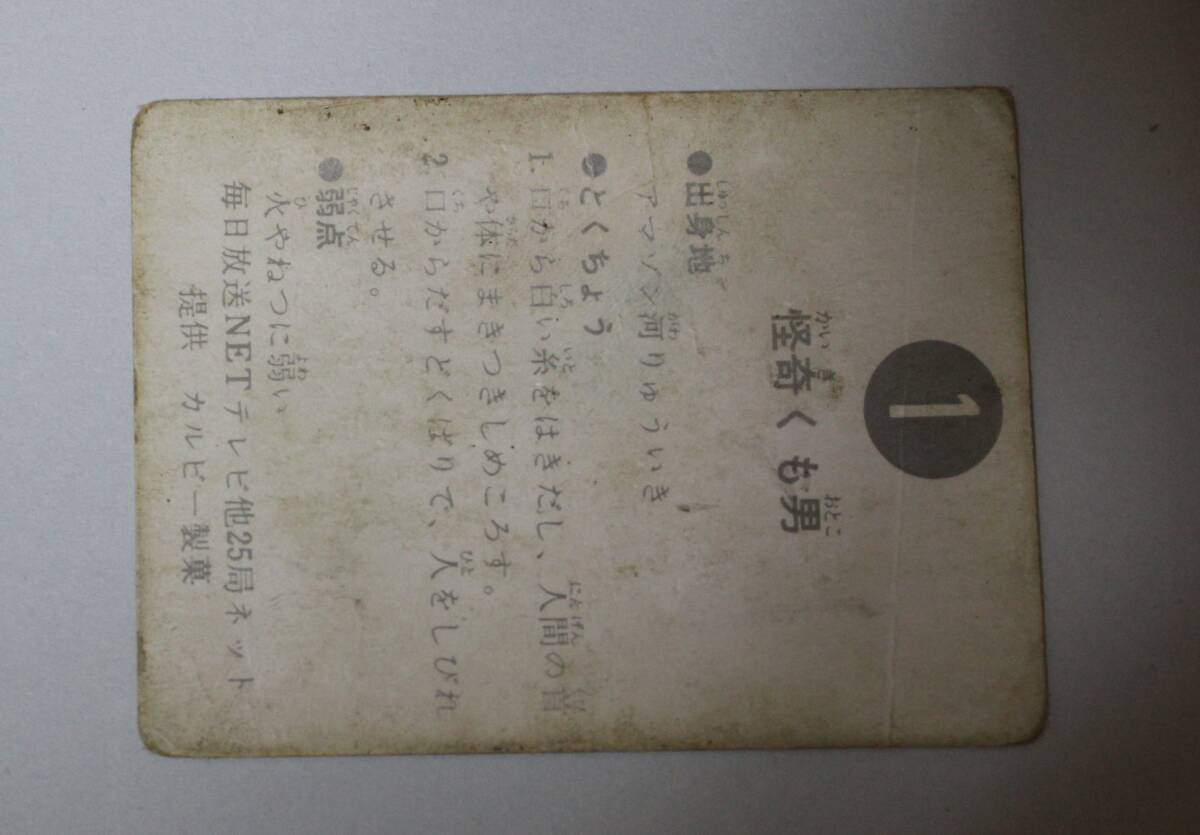 1
怪奇くも男
●出身地
アマゾン河りゅういき
●とくちょう
1. 口から白い糸をはきだし、人間の首
や体にまきつきしめころす。
2. 口からだすどくばりで、人をしびれ
させる。
●弱点
火やねつに弱い
毎日放送NETテレビ他25局ネット
提供 カルビー製菓